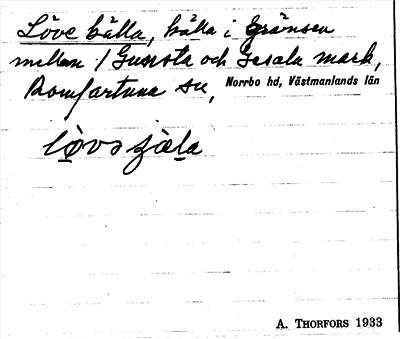 Löve källa, källa i gränsen
mellan / Gunsta och Gesala mark,
Romfartuna sn, Norrbo hd, Västmanlands län
lövs jäla
A. THORFORS 1933